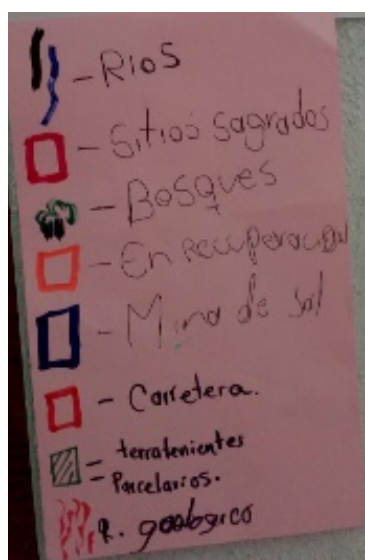 - Rios
- Sitios sagrados
- Bosques
- En Recuperación
- Mina de sal
- Carretera.
- terratenientes
- Parcelarios.
R. geologico